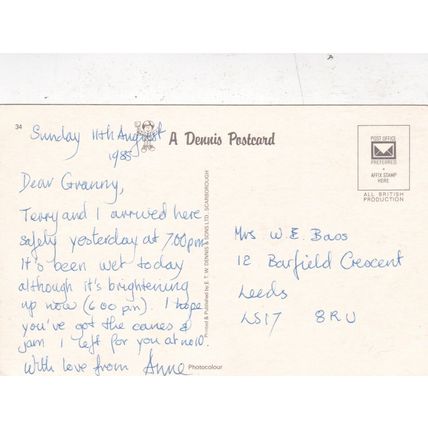 34
Sunday 11th August
1985
A Dennis Postcard
POST OFFICE
PREFERRED
AFFIX STAMP
HERE
ALL BRITISH
PRODUCTION
Dear Granny,
Terry and I arrived here
safely yesterday at 7.00pm.
It's been wet today
although it's brightening
up now (6 00 pm). I hope
you've got the canes &
jam I left for you at no 10.
With love from Anne
Printed & Published by E. T. W. DENNIS & SONS LTD., SCARBOROUGH
Photocolour
Mrs W. E. Bass
12 Barfield Crescent
Leeds
LS17 8RU